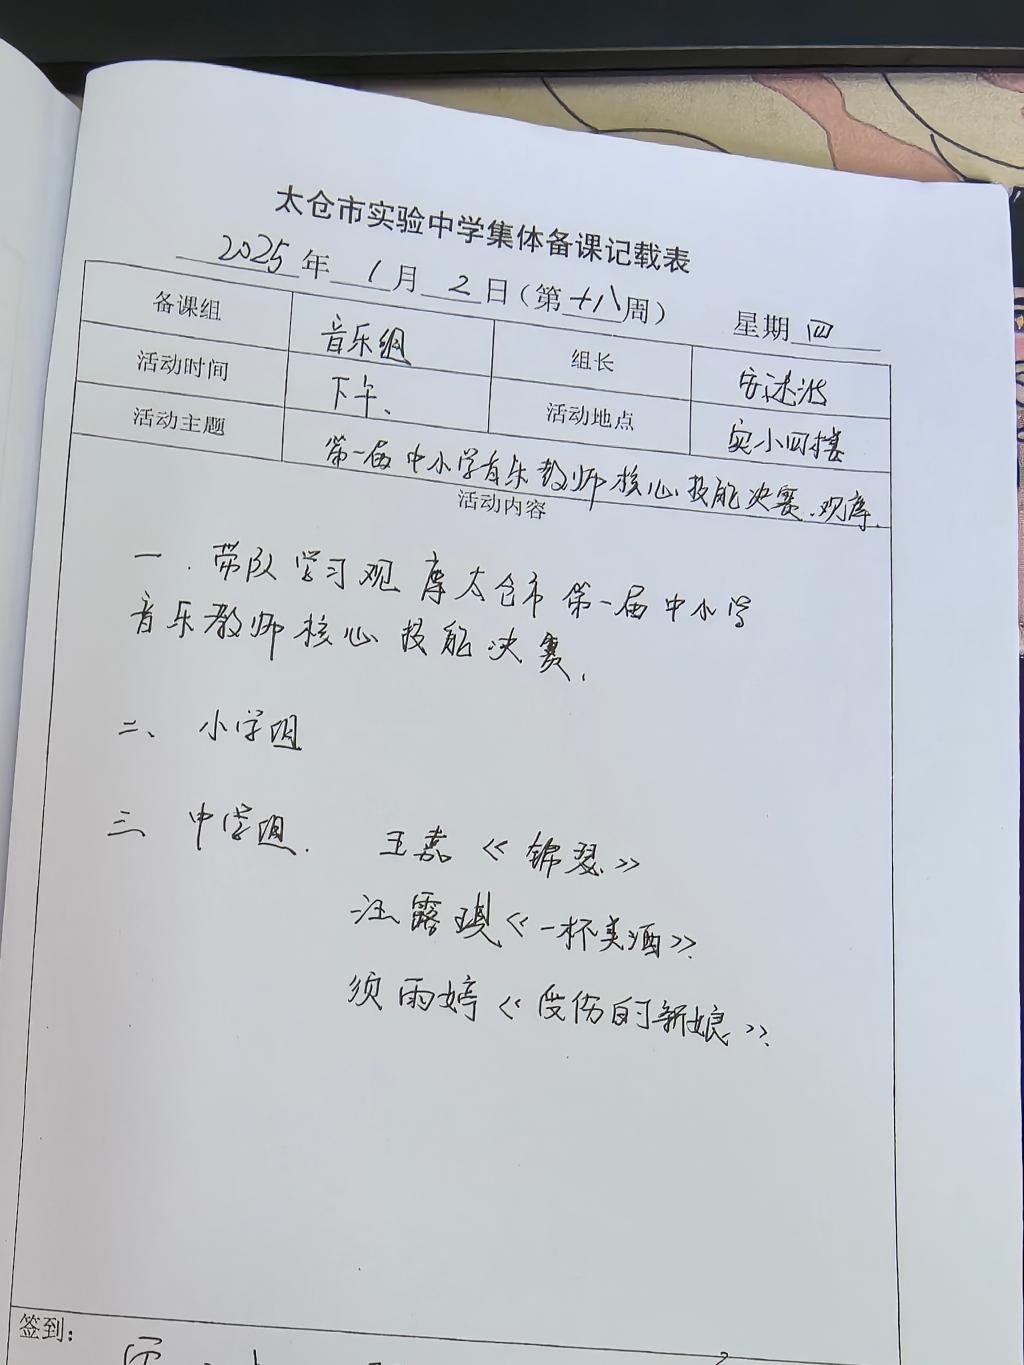 太仓市实验中学集体备课记载表
2025年1月2日(第十八周) 星期四
备课组 音乐组 组长
活动时间 下午、 活动地点 实小四楼
活动主题 第一届中小学音乐教师核心技能决赛.观摩.
活动内容
一.带队学习观摩太仓市第一届中小学
音乐教师核心技能决赛.
二、小学组
三 中学组. 王嘉《锦瑟》
汪露琪《一杯美酒》
须雨婷《受伤的新娘》
签到: